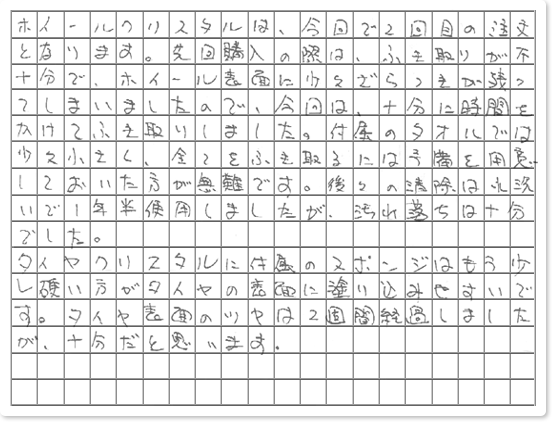 ホイールクリスタルは、今回で2回目の注文
となります。先回購入の際は、ふき取りが不
十分で、ホイール表面に少々ざらつきが残っ
てしまいましたので、今回は、十分に時間を
かけてふき取りしました。付属のタオルでは
少々小さく、全てをふき取るには予備を用意
しておいた方が無難です。後々の清除は水洗
いで1年半使用しましたが、汚れ落ちは十分
でした。
タイヤクリスタルに付属のスポンジはもう少
し硬い方がタイヤの表面に塗り込みやすいで
す。タイヤ表面のツヤは2週間経過しました
が、十分だと思います。